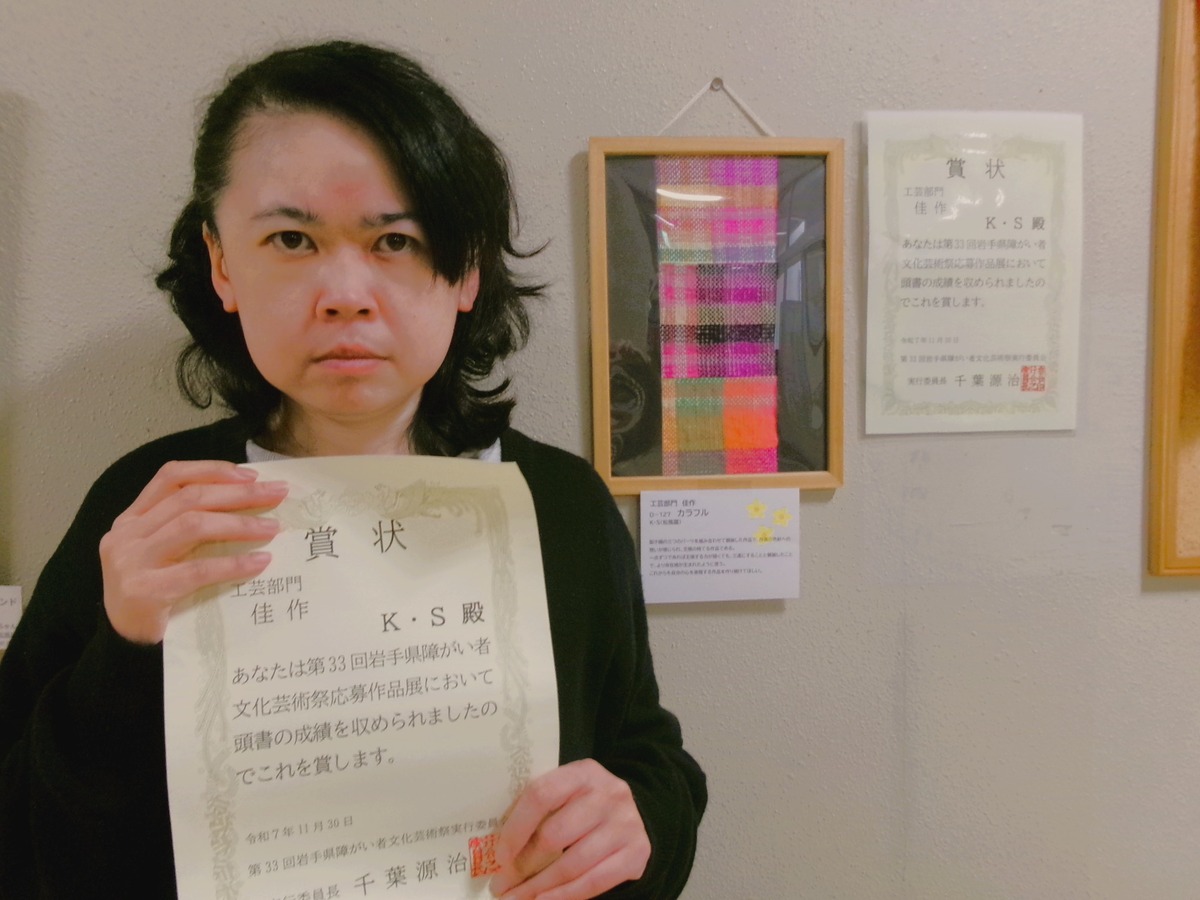 賞状
工芸部門
佳作
K・S 殿
あなたは第33回岩手県障がい者
文化芸術祭応募作品展において
頭書の成績を収められましたの
でこれを賞します。
令和7年11月30日
第33回岩手県障がい者文化芸術祭実行委員
委員長 千葉源治
工芸部門 佳作
カラフル
賞状
工芸部門
佳作
K・S 殿
あなたは第33回岩手県障がい者
文化芸術祭応募作品展において
頭書の成績を収められましたの
でこれを賞します。
令和7年11月30日
実行委員長 千葉源治
ンド